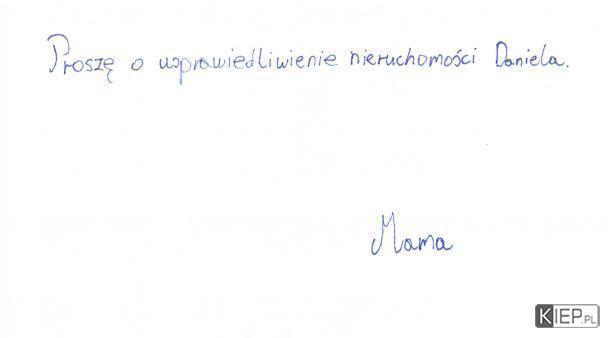 Proszę o usprawiedliwienie nieruchomości Daniela.
Mama
KIEP.PL